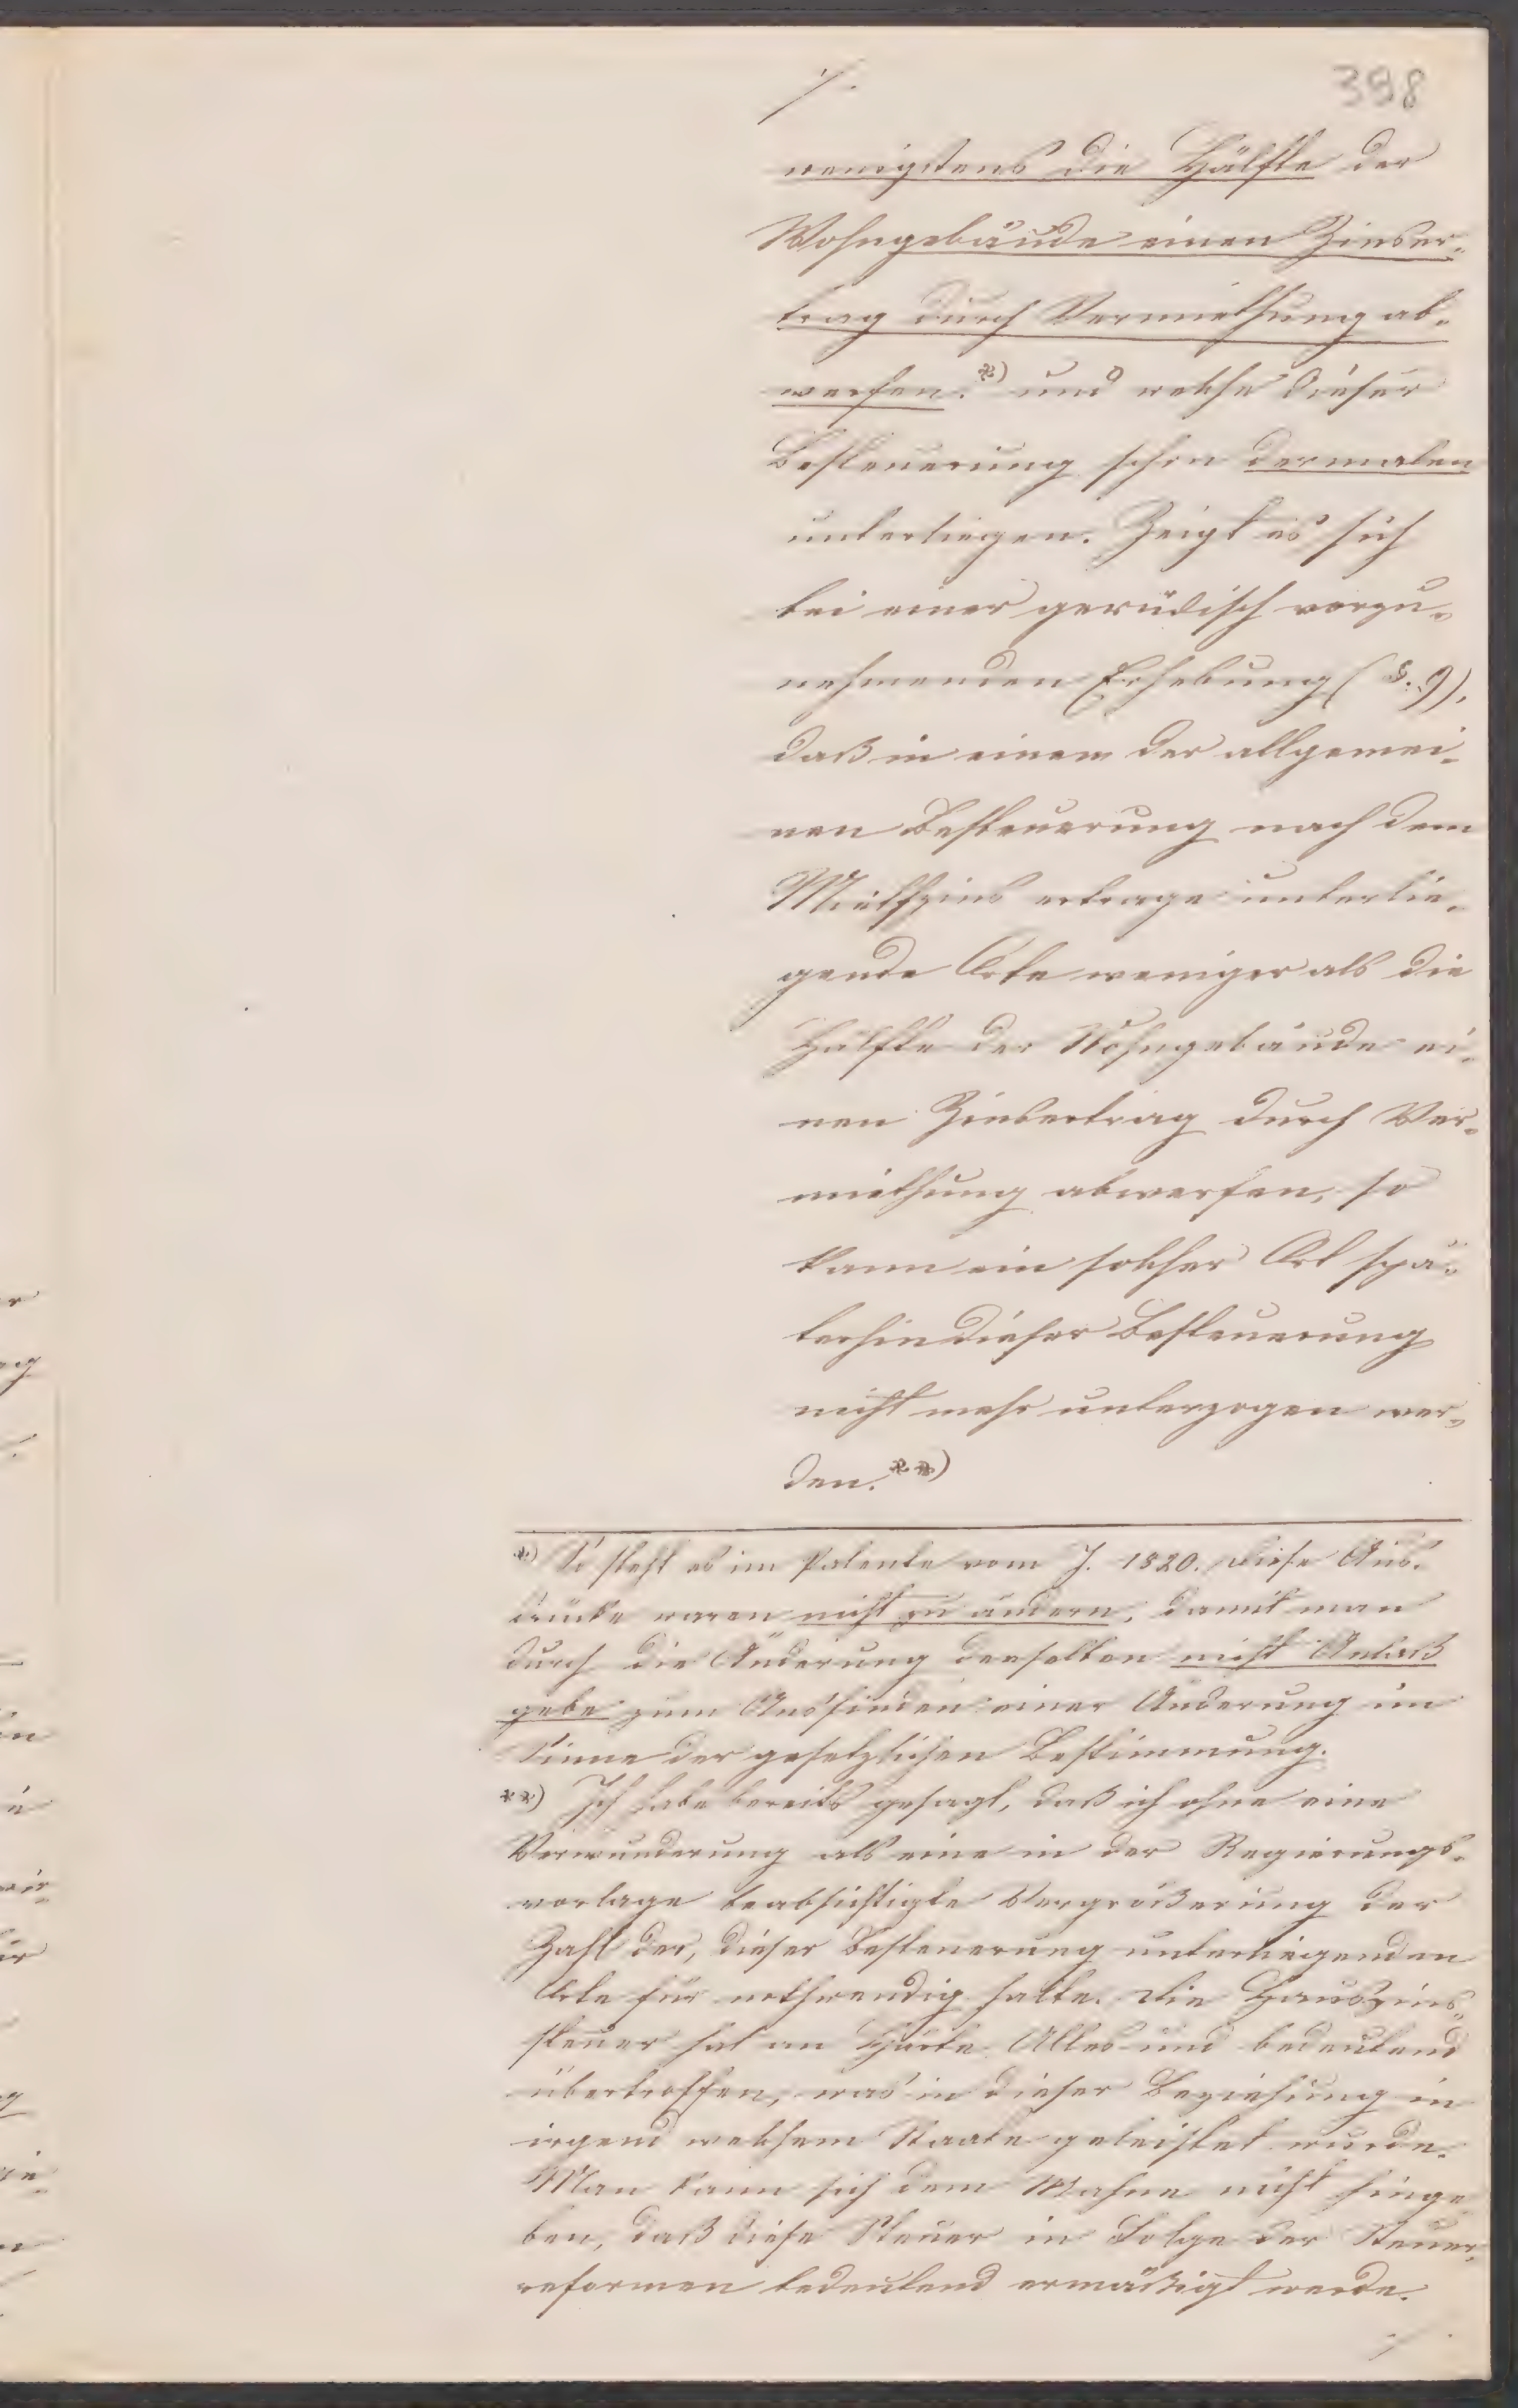 ./.
398
wenigstens die Hälfte der
Wohngebäude einen Zinser-
trag durch Vermiethung ab-
werfen.*) und welche dieser
Besteuerung schon dermalen
unterliegen. Zeigt es sich
bei einer periodisch vorzu-
nehmenden Erhebung (§. 9),
daß in einem der allgemei-
nen Besteuerung nach dem
Miethzins ertrage unterlie-
gende Orte weniger als die
Hälfte der Wohngebäude ei-
nen Zinsertrag durch Ver-
miethung abwerfen, so
kann ein solcher Ort spä-
terhin dieser Besteuerung
nicht mehr unterzogen wer-
den.**)
*) So steht es im Patente vom J. 1820. Diese Aus-
drücke waren nicht zu ändern, damit man
durch die Änderung derselben nicht Anlaß
gebe zum Ausfinden einer Änderung im
Sinne der gesetzlichen Bestimmung.
**) Ich habe bereits gesagt, daß ich ohne eine
Verwunderung als eine in der Regierungs-
vorlage beabsichtigte Vergrößerung der
Zahl der, dieser Besteuerung unterliegenden
Orte für nothwendig halte. Die Hauszins-
steuer hat an Härte Alles und bedeutend
übertroffen, was in dieser Beziehung in
irgend welchem Staate geleistet wurde.
Man kann sich dem Wahne nicht hinge
ben, daß diese Steuer in Folge der Steuer-
reformen bedeutend ermäßigt werde.
./.